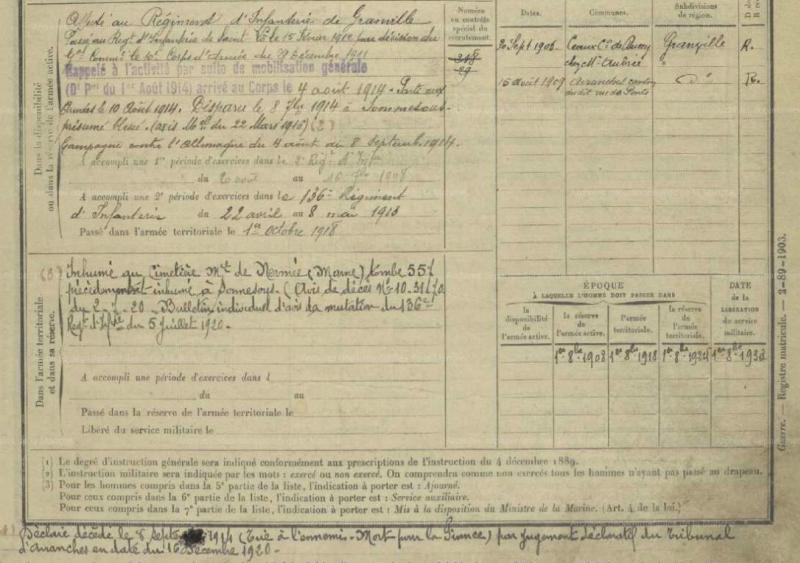 Dans la disponibilité
ou dans la réserve de l'armée active.
Affecté au Régiment d'Infanterie de Granville
Passé au Regt d'Infanterie de Saint Lô le 15 février 1912 par décision du
Rappelé à l'activité par suite de mobilisation générale
(Dt Pres du 1er Août 1914) arrivé au Corps le 4 août 1914. Parti aux
Armées le 10 Août 1914. Disparu le 8 7bre 1914 à Sommesous
présumé blessé. (avis Mel du 22 Mars 1915) (2)
Campagne contre l'Allemagne du 4 août au 8 septemb. 1914.
A accompli une 1re période d'exercices dans le 2e Regt d'Infie
du 20 août au 1908
A accompli une 2e période d'exercices dans le 136e Régiment
d'Infanterie du 22 avril au 8 mai 1913
Passé dans l'armée territoriale le 1er Octobre 1918
Numéro
au contrôle
spécial du
recrutement.
Dates.
Communes.
Subdivisions
de région.
20 Sept 1905
Granville
R.
16 août 1909
Avranches
do
R.
Dans l'armée territoriale
et dans sa réserve.
(3) Inhumé au Cimetière Mre de Normée (Marne) tombe 557
précédemment inhumé à Sommesous. (Avis de décès No 10.
du 2-7-20 - Bulletin individuel d'avis de mutation du 136e
Regt d'Infrie du 5 Juillet 1920.
A accompli une période d'exercices dans l
du au
Passé dans la réserve de l'armée territoriale le
Libéré du service militaire le
ÉPOQUE
À LAQUELLE L'HOMME DOIT PASSER DANS
DATE
de la
LIBÉRATION
du service
militaire.
la
disponibilité
de l'armée active.
la réserve
de
l'armée active.
l'armée
territoriale.
la réserve
de
l'armée
territoriale.
1er 8bre 1908
1er 8bre 1918
1er 8bre 1924
1er 8bre 1930
Guerre. — Registre matricule. — 2-89-1903.
(1) Le degré d'instruction générale sera indiqué conformément aux prescriptions de l'instruction du 4 décembre 1889.
(2) L'instruction militaire sera indiquée par les mots : exercé ou non exercé. On comprendra comme non exercés tous les hommes n'ayant pas passé au drapeau.
(3) Pour les hommes compris dans la 5e partie de la liste, l'indication à porter est : Ajourné.
Pour ceux compris dans la 6e partie de la liste, l'indication à porter est : Service auxiliaire.
Pour ceux compris dans la 7e partie de la liste, l'indication à porter est : Mis à la disposition du Ministre de la Marine. (Art. 4 de la loi.)
Déclaré décédé le 8 septembre 1914 (Tué à l'ennemi - Mort pour la France) par jugement déclaratif du Tribunal
d'Avranches en date du 16 Décembre 1920 -